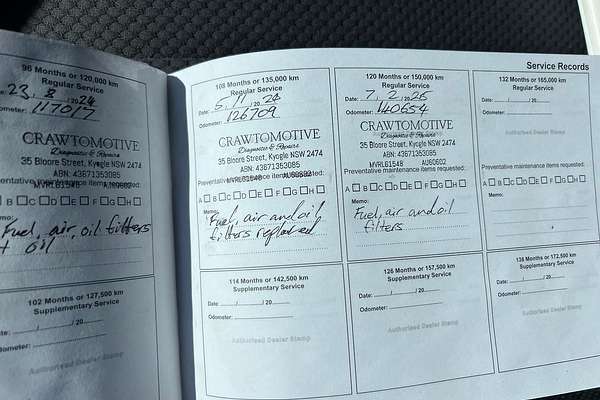 Service Records
96 Months or 120,000 km
Regular Service
23, 8 / 20 24
ometer: 117017
CRAWTOMOTIVE
Diagnostics & Repairs
35 Bloore Street, Kyogle NSW 2474
ABN: 43671353085
entative maintenance items requested:
MVRL61548 AU60602
B C D E F G H
mo:
Fuel, air, oil filters
+ oil
102 Months or 127,500 km
Supplementary Service
ate: / / 20
ometer:
Authorised Dealer Stamp
108 Months or 135,000 km
Regular Service
Date: 5, 11 / 20 24
Odometer: 126709
CRAWTOMOTIVE
Diagnostics & Repairs
35 Bloore Street, Kyogle NSW 2474
ABN: 43671353085
Preventative maintenance items requested:
MVRL61548 AU60602
A B C D E F G H
Memo:
Fuel, air and oil
filters replaced
114 Months or 142,500 km
Supplementary Service
Date: / / 20
Odometer:
Authorised Dealer Stamp
120 Months or 150,000 km
Regular Service
Date: 7, 2 / 20 25
Odometer: 140654
CRAWTOMOTIVE
Diagnostics & Repairs
35 Bloore Street, Kyogle NSW 2474
ABN: 43671353085
MVRL61548 AU60602
Preventative maintenance items requested:
A B C D E F G H
Memo:
Fuel, air and oil
filters
126 Months or 157,500 km
Supplementary Service
Date: / / 20
Odometer:
Authorised Dealer Stamp
132 Months or 165,000 km
Regular Service
Date: / / 20
Odometer:
Authorised Dealer Stamp
Preventative maintenance items requested:
A B C D E F G H
Memo:
138 Months or 172,500 km
Supplementary Service
Date: / / 20
Odometer:
Authorised Dealer Stamp